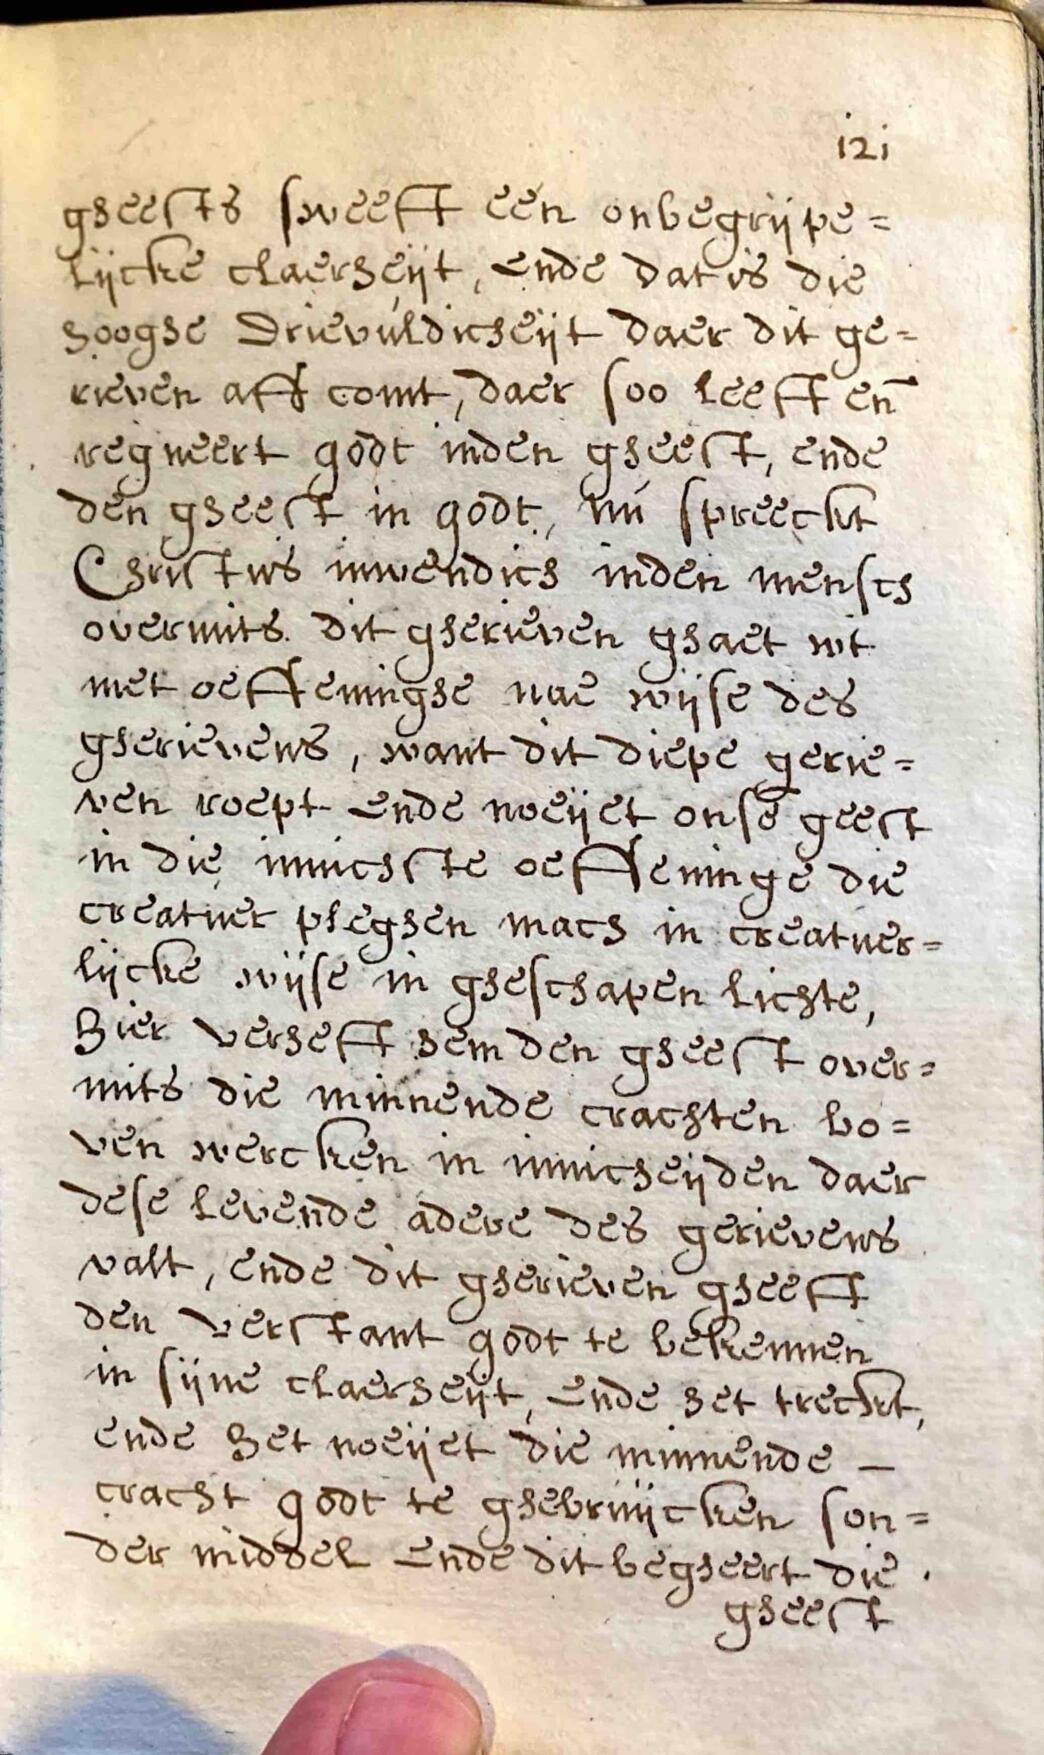 121
gheests sweeft een onbegrijpe=
lijcke claerheijt, ende dat is die
hooghe Drievúldicheijt daer dit ge=
rieven aff comt, daer soo leeft en̄
regneert godt inden gheest, ende
den gheest in godt, nú spreeckt
Christus inwendich inden mensch
overmits dit gherieven ghaet wt
met oeffeninghe nae wijse des
gherievens, want dit diepe gerie=
ven roept ende noeijet onse geest
in die innichste oeffeninge die
creatuer pleghen mach in creatuer=
lijcke wijse in gheschapen lichte,
Hier verheft hem den gheest over=
mits die minnende crachten bo=
ven wercken in innicheijden daer
dese levende adere des gerievens
valt, ende dit gherieven gheeft
den verstant godt te bekennen
in sijne claerheijt, ende het treckt,
ende het noeijet die minnende —
cracht godt te ghebruijcken son=
der middel ende dit begheert die
gheest